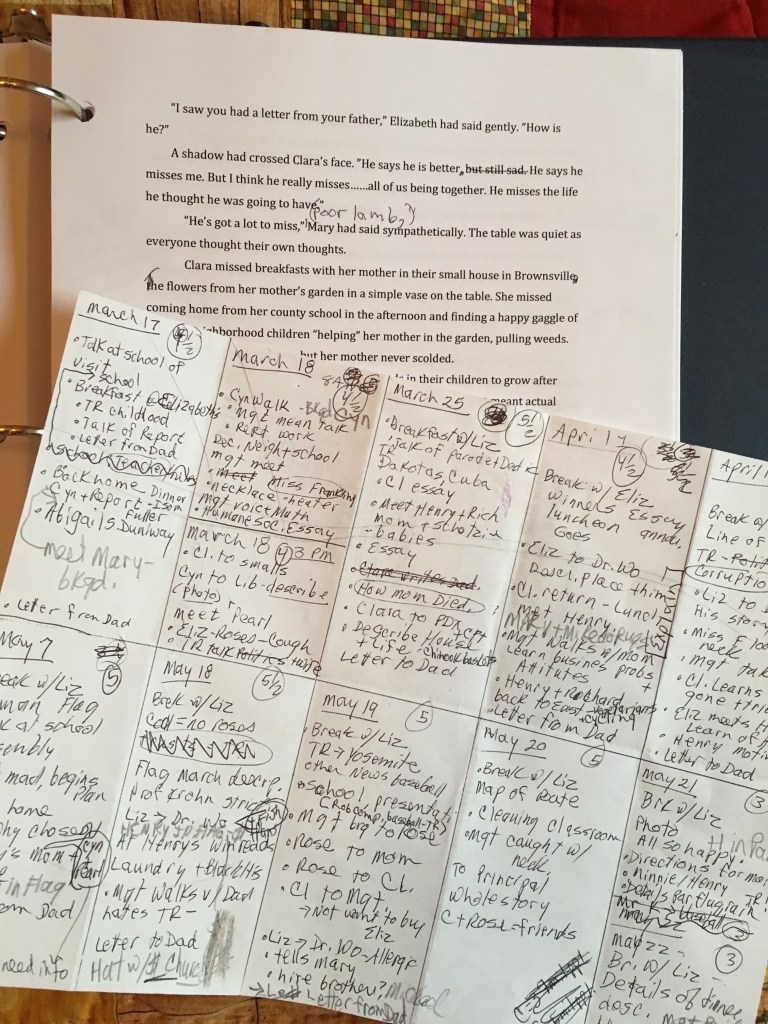 "I saw you had a letter from your father," Elizabeth had said gently. "How is
he?"
A shadow had crossed Clara's face. "He says he is better, but still sad. He says he
misses me. But I think he really misses……all of us being together. He misses the life
he thought he was going to have."
(Poor lamb,")
"He's got a lot to miss," Mary had said sympathetically. The table was quiet as
everyone thought their own thoughts.
Clara missed breakfasts with her mother in their small house in Brownsville,
the flowers from her mother's garden in a simple vase on the table. She missed
coming home from her county school in the afternoon and finding a happy gaggle of
children "helping" her mother in the garden, pulling weeds.
but her mother never scolded.
in their children to grow after
meant actual
March 17
4 1/2
• Talk at school of
visit school
• Breakfast @ Elizabeth's
• TR childhood
• Talk of Report
• Letter from Dad
• Back home Dinner
• Cyn + Report - Isom
Fuller
• Abigail S. Duniway
meet Mary-
bkgd.
• Letter from Dad
March 18
8 AM
4 1/2
• Cyn Walk - Bkgd Cyn
• Mgt mean talk
• ReRt work
Dec. Neigh + school
mgt meet
• meet Miss Frankling
• necklace - heater
mgt voice Math
• Humane Soc. Essay
March 18 3 PM
• Cl. to smalls
Cyn to Lib - describe
(photo)
meet Pearl
• Eliz - Roses - Cough
• TR talk Politics
March 25
5 1/2
• Breakfast w/ Liz
Talk of parade + Ded
TR
Dakotas, Cuba
• Cl essay
• Meet Henry + Rich
mom + Schotzi
- babies
• Essay
Clara writes Dad.
• How mom Died.
• Clara to PDX
• Describe House
+ Life - Chinook baskets
Letter to Dad
April 17
4 1/2
Break w/ Eliz
winners Essay
luncheon annd.
Goes
• Eliz to Dr. Wo
• Cl. return - Lunch
Met Henry
• Mgt Walks w/ Mom
Learn business probs
Attitutes +
• Henry + Richard
back to East - vegetarians
+ cycling
• Letter from Dad
April
Break w/
Line of
TR - Polit
Corruptio
• Liz to D
His story
• Miss F loo
neck
Mgt tak
• Cl. Learns
gone + tri
• Eliz meets
Learn of
• Henry moti
• Letter to Dad
May 7
5
eak w/ Liz
man Flag
k at school
sembly
mad, begins
plan
home
hy chose
's Mom +
Cyn
+
Pearl
in Flag
om Dad
need info
May 18
5 1/2
Brek w/ Liz
Cool = no roses
Flag March descrp.
Prof Krohn strict
Liz → Dr. Wo
At Henry's win reads
Laundry +
• Mgt Walks w/ Dad
hates TR -
Letter to Dad
May 19
5
• Break w/ Liz
TR → Yosemite
other News baseball
• School presentati
(Rob comp, baseball - TR)
• Mgt brg to Rose
Rose to mom
• Rose to CL.
• Cl to Mgt
→ Not want to buy
Eliz
• Liz → Dr. Wo - Allergic
• tells mary
• hire brother? Michael
→ Letter from Dad
May 20
5
• Break w/ Liz
Map of Route
• Cleaning classroom
• Mgt caught w/
neck.
To Principal
whole story
C + Rose - friends
May 21
3
Brk w/ Liz
Photo
All so happy.
• Directions for ma
• Minnie/Henry
• Details
3
May 22 -
Br. w/ Liz -
Details of dinner
desc.